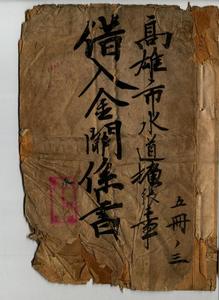 高雄市水道擴張工事
借入金關係書
五冊ノ三